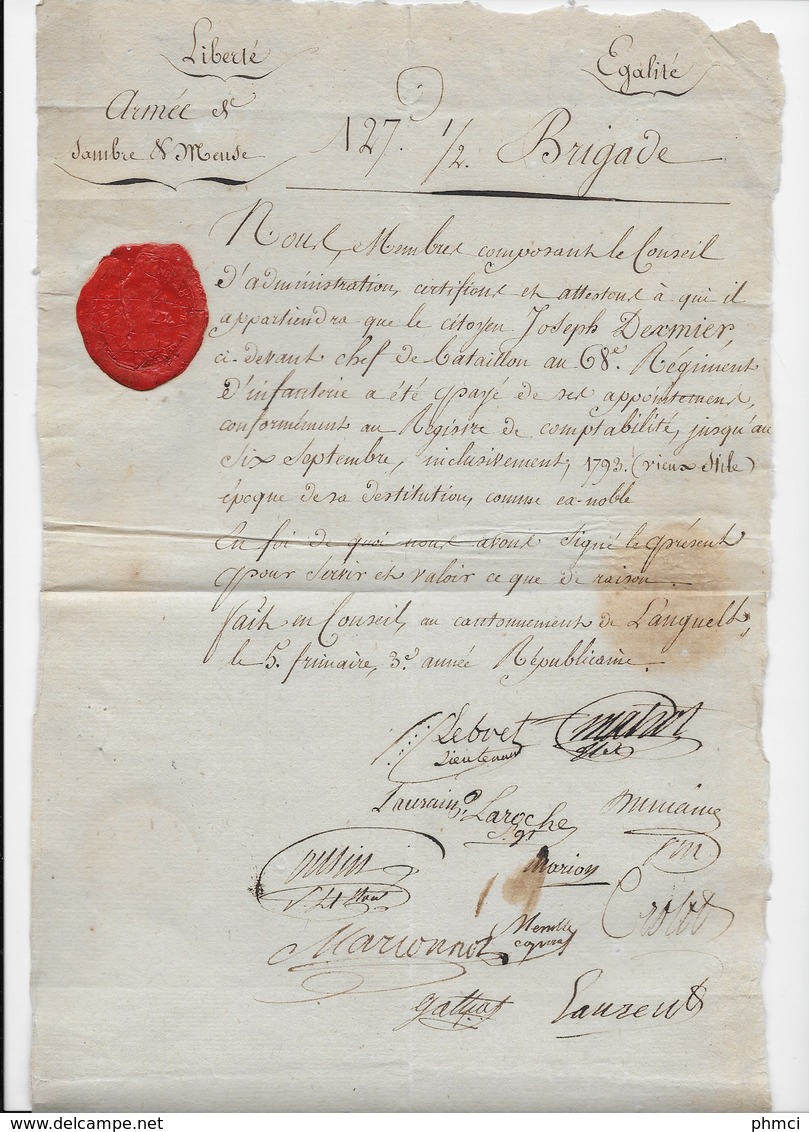 Liberté
Egalité
Armée de
Sambre & Meuse
127e. 1/2. Brigade
Nous, Membres composant le Conseil
d'administration, certifions et attestons à qui il
appartiendra que le citoyen Joseph Dexmier
ci-devant chef de bataillon au 68e. Régiment
d'infanterie a été payé de ses appointemens,
conformément au Régistre de comptabilité, jusqu'au
Six Septembre, inclusivement, 1793. (vieux Stile)
époque de sa destitution, comme ex-noble
En foi de quoi nous avons Signé le présent
pour Servir et valoir ce que de raison.
fait en Conseil, au cantonnement de
le 5. frimaire, 3e. année Républicaine.
Lebvet
Lieutenant
Laroche
Sgt
Marion
Marionnot
Laurent
delcampe.net
phmci